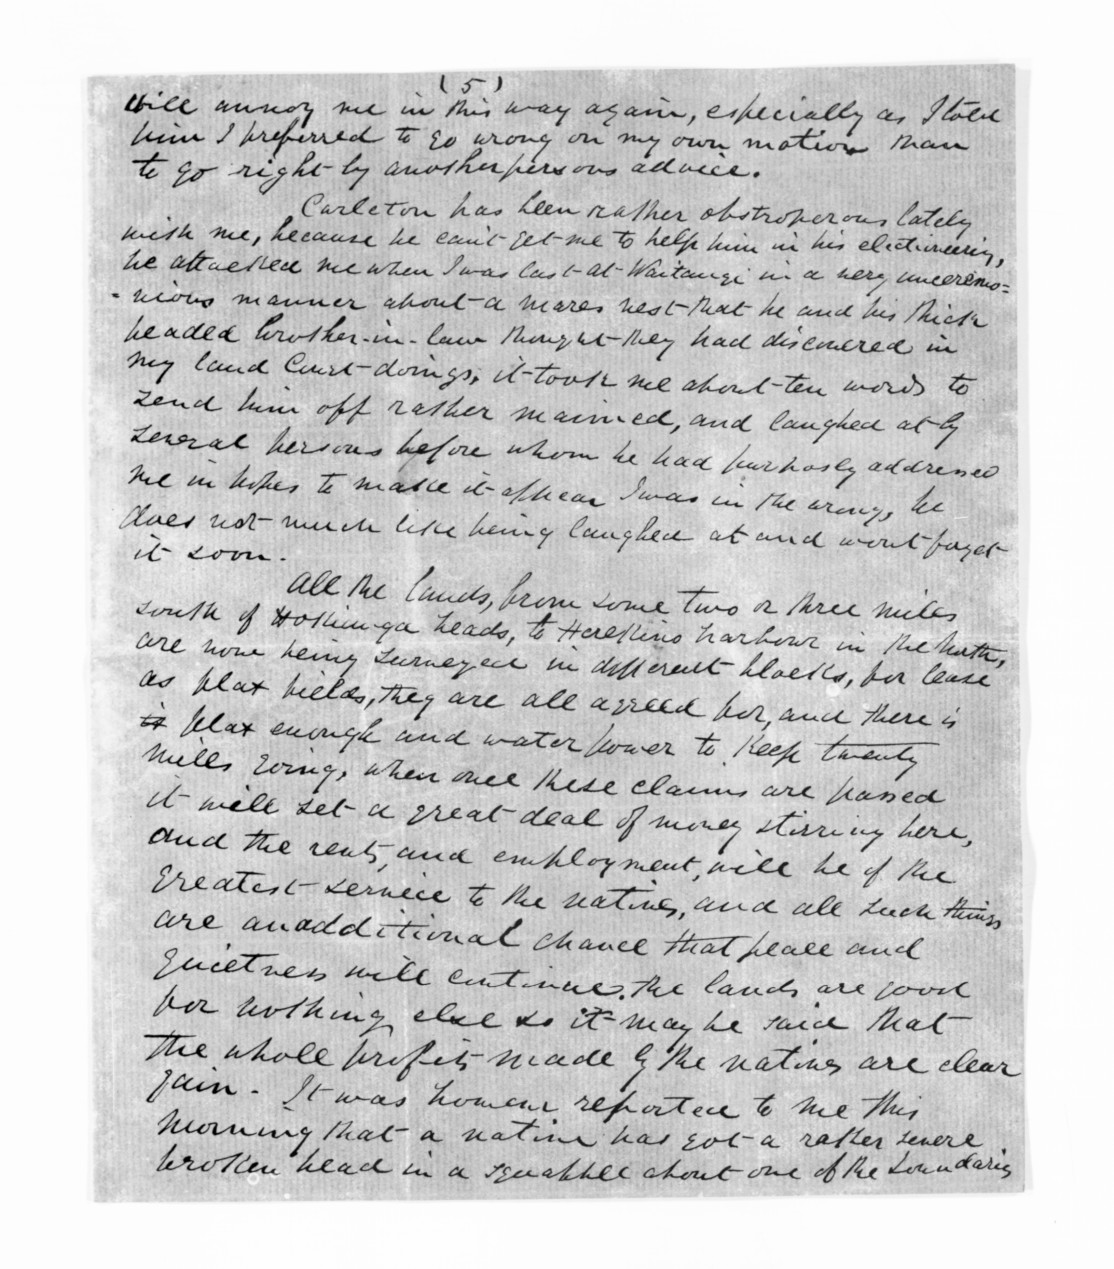 (5)
will annoy me in this way again, especially as I told
him I preferred to go wrong on my own motion than
to go right by another persons advice.
Carleton has been rather obstroperous lately
with me, because he can't get me to help him in his electioneering,
he attacked me when I was last at Waitangi in a very unceremo=
=nious manner about a mares nest that he and his thick
headed brother-in-law thought they had discovered in
my land Court doings, it took me about ten words to
send him off rather maimed, and laughed at by
several persons before whom he had purposly addressed
me in hopes to make it appear I was in the wrong, he
does not much like being laughed at and wont forget
it soon.
All the lands, from some two or three miles
south of Hokianga heads, to Herekino harbour in the North,
are now being surveyed in different blocks, for lease
as flax fields, they are all agreed for, and there is
is flax enough and water power to keep twenty
mills going, when once these claims are passed
it will set a great deal of money stirring here,
and the rents, and employment, will be of the
greatest service to the natives, and all such things
are an additional chance that peace and
quietness will continue. The lands are good
for nothing else so it may be said that
the whole profits made by the natives are clear
gain - It was however reported to me this
morning that a native has got a rather severe
broken head in a squabble about one of the boundaries